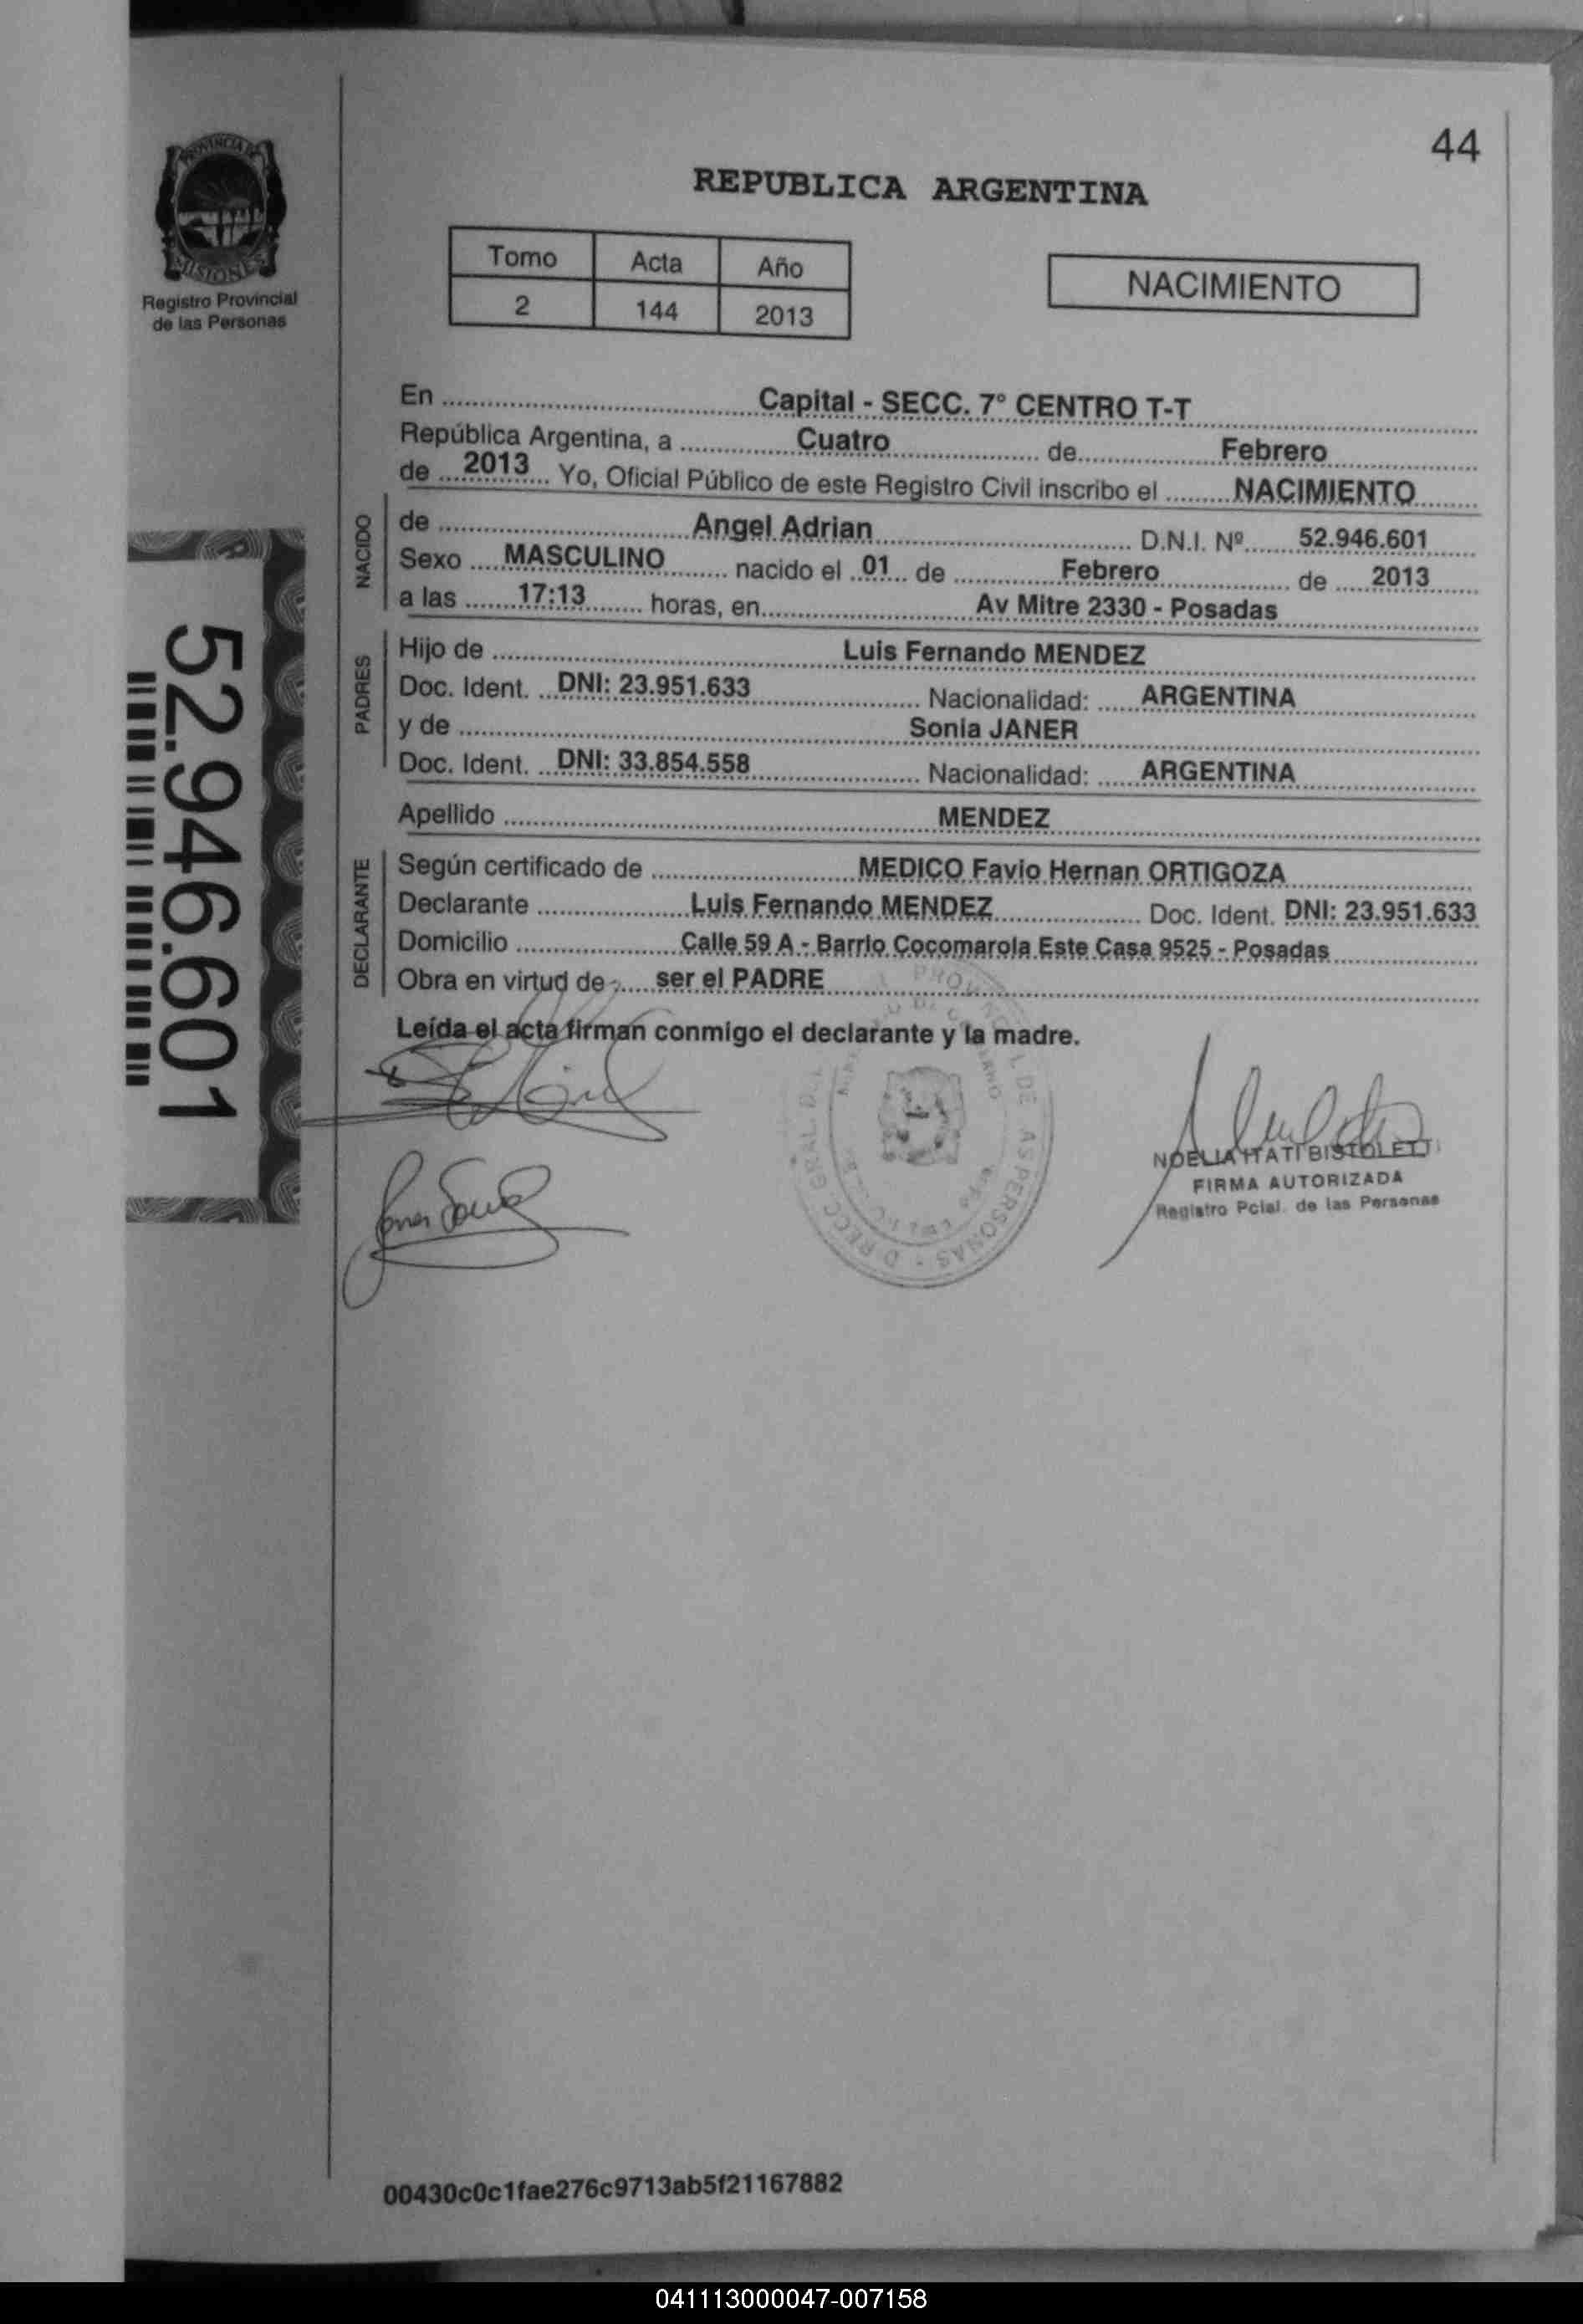 44
PROVINCIA DE
MISIONES
Registro Provincial
de las Personas
REPUBLICA ARGENTINA
Tomo Acta Año
2 144 2013
NACIMIENTO
En Capital - SECC. 7° CENTRO T-T
República Argentina, a Cuatro de Febrero
de 2013 Yo, Oficial Público de este Registro Civil inscribo el NACIMIENTO
NACIDO
de Angel Adrian D.N.I. Nº 52.946.601
Sexo MASCULINO nacido el 01 de Febrero de 2013
a las 17:13 horas, en Av Mitre 2330 - Posadas
PADRES
Hijo de Luis Fernando MENDEZ
Doc. Ident. DNI: 23.951.633 Nacionalidad: ARGENTINA
y de Sonia JANER
Doc. Ident. DNI: 33.854.558 Nacionalidad: ARGENTINA
Apellido MENDEZ
DECLARANTE
Según certificado de MEDICO Favio Hernan ORTIGOZA
Declarante Luis Fernando MENDEZ Doc. Ident. DNI: 23.951.633
Domicilio Calle 59 A - Barrio Cocomarola Este Casa 9525 - Posadas
Obra en virtud de ser el PADRE
Leída el acta firman conmigo el declarante y la madre.
52.946.601
NOELIA ITATI BISTOLETTI
FIRMA AUTORIZADA
Registro Pcial. de las Personas
00430c0c1fae276c9713ab5f21167882
041113000047-007158